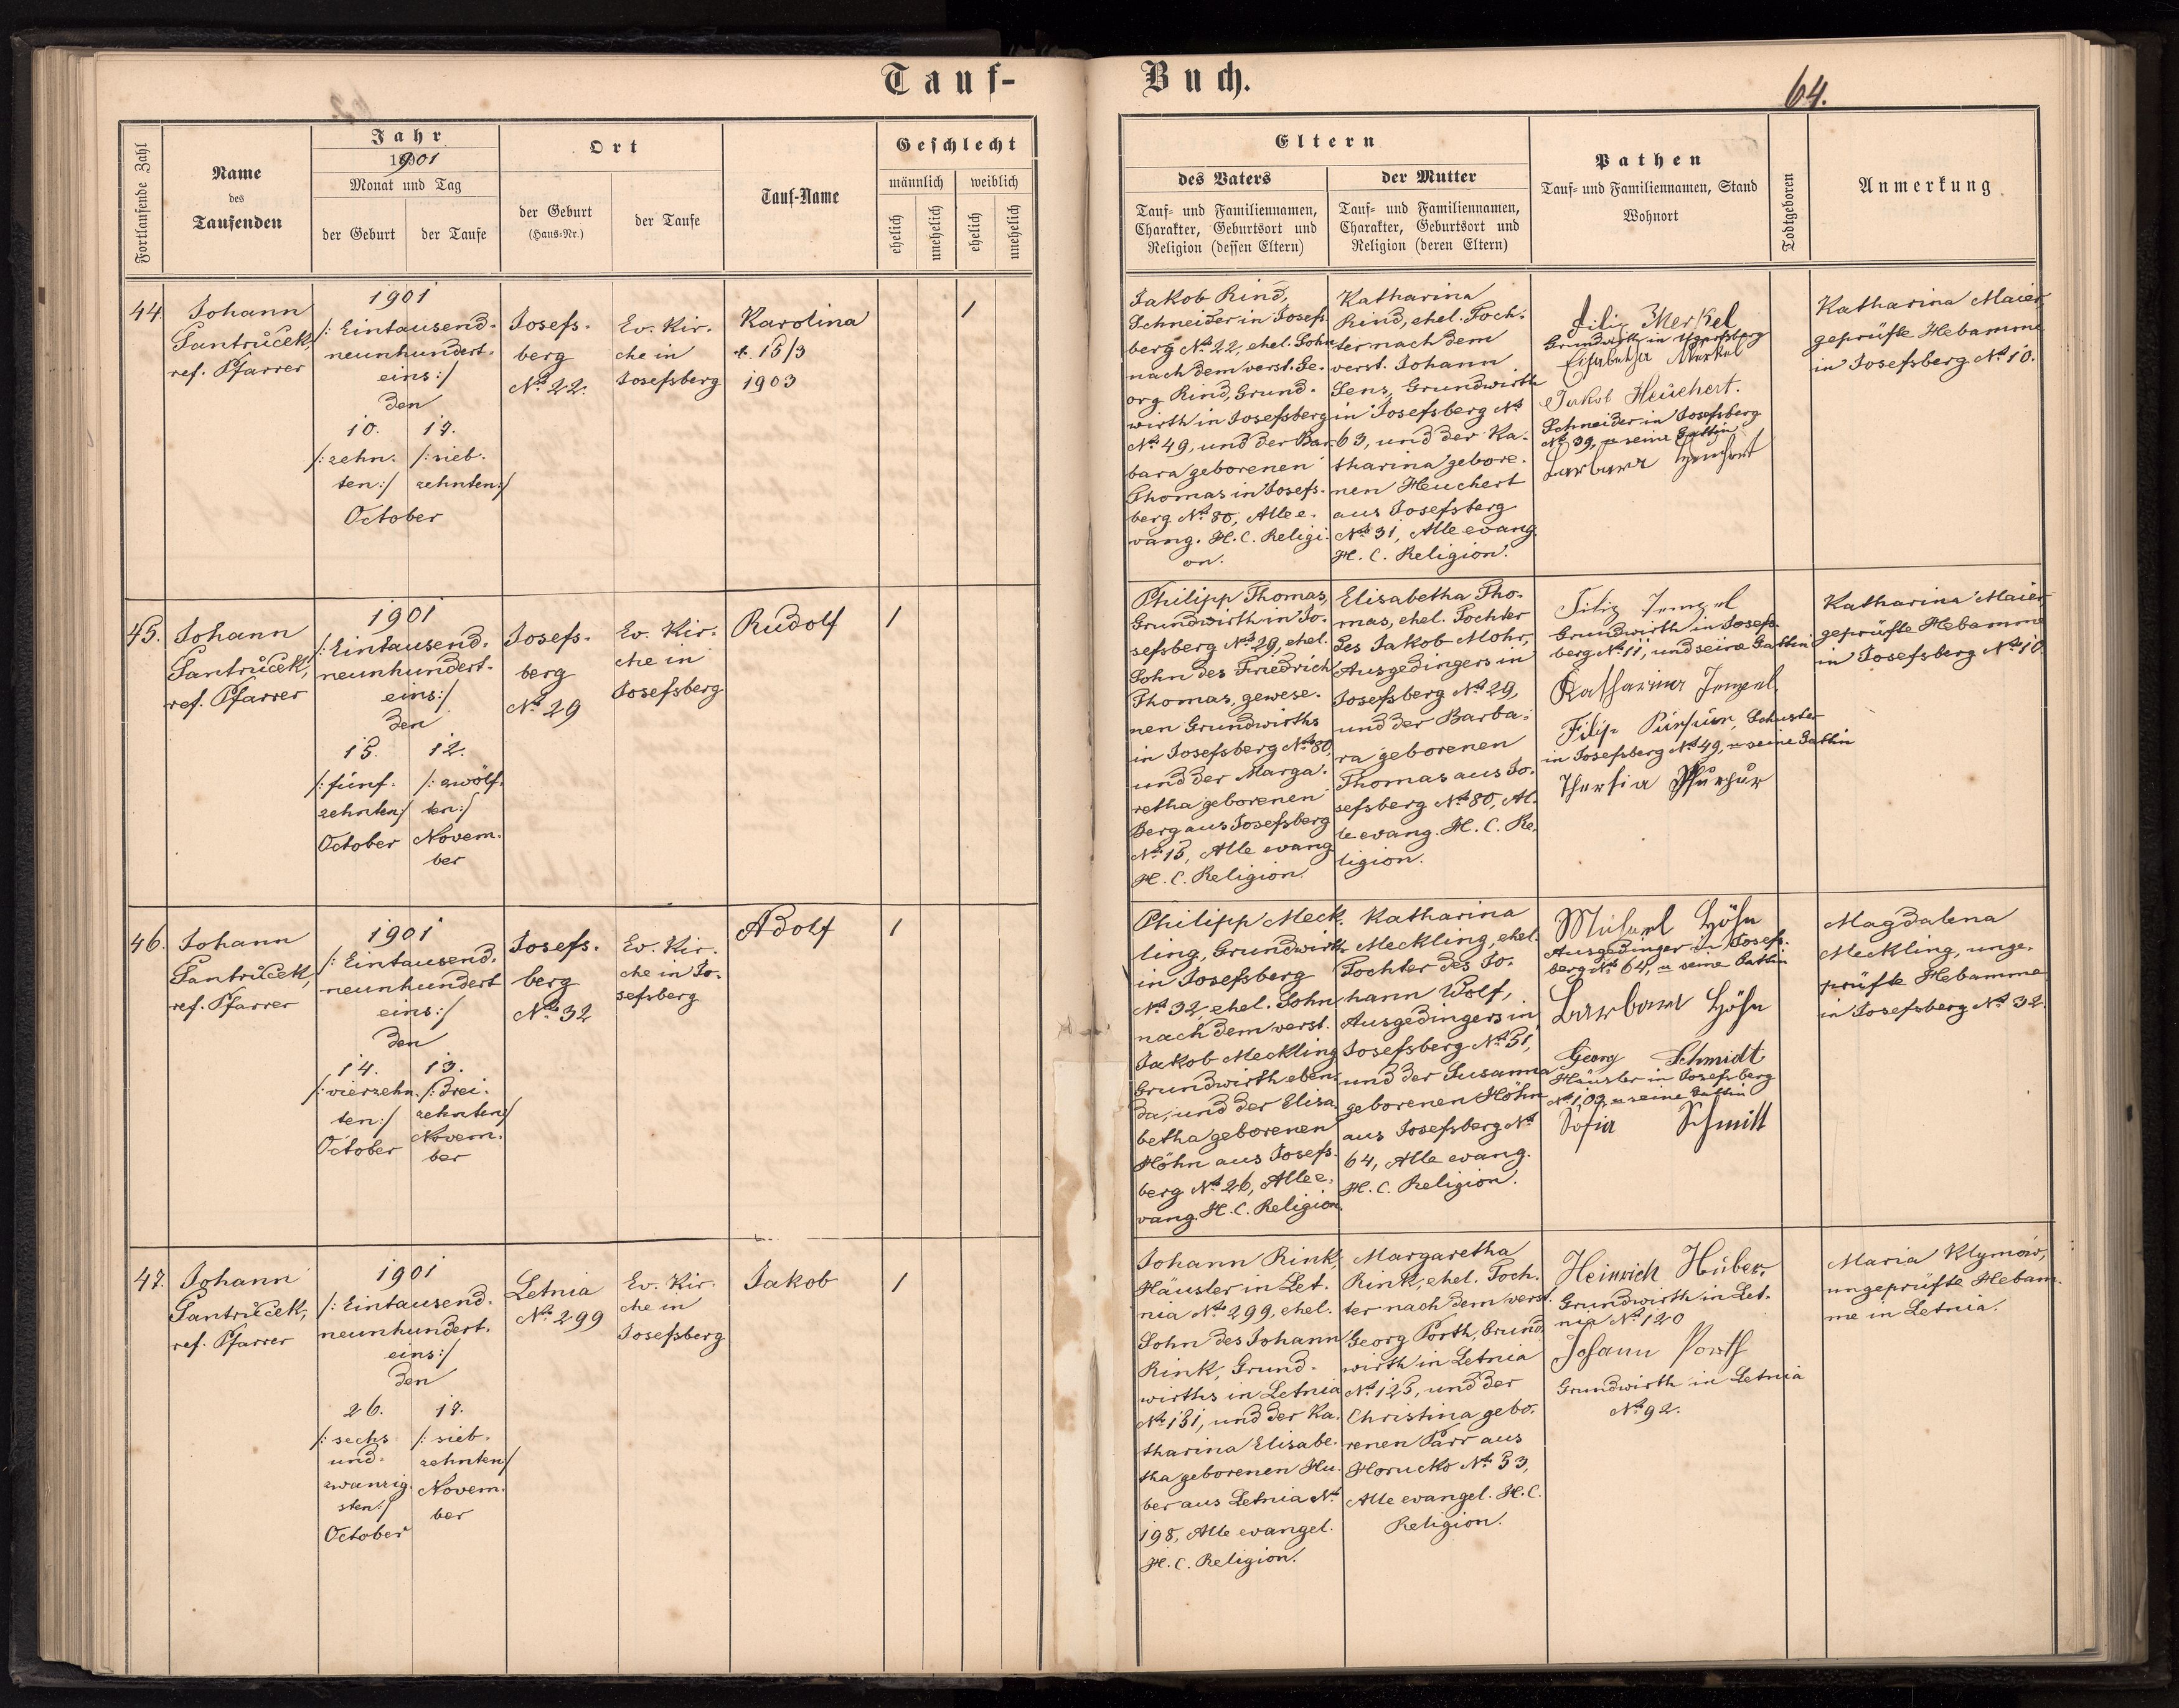 Tauf-
Buch.
64.
Fortlaufende Zahl
Name
des
Taufenden
Jahr
1901
Monat und Tag
der Geburt
der Taufe
Ort
der Geburt
(Haus-Nr.)
der Taufe
Tauf-Name
Geschlecht
männlich
weiblich
ehelich
unehelich
ehelich
unehelich
Eltern
des Vaters
Tauf- und Familiennamen,
Charakter, Geburtsort und
Religion (dessen Eltern)
der Mutter
Tauf- und Familiennamen,
Charakter, Geburtsort und
Religion (deren Eltern)
Pathen
Tauf- und Familiennamen, Stand
Wohnort
Todtgeboren
Anmerkung
44.
Johann
Santrůček,
ref. Pfarrer
1901
/: Eintausend-
neunhundert-
eins :/
den
10.
/: zehn-
ten :/
17.
/: sieb-
zehnten :/
October
Josefs-
berg
No. 22.
Ev. Kir-
che in
Josefsberg
Karolina
†. 15/3
1903
1
Jakob Rind,
Schneider in Josefs-
berg No. 22, ehel. Sohn
nach dem verst. Ge-
org Rind, Grund-
wirth in Josefsberg
No. 49, und der Bar-
bara geborenen
Thomas in Josefs-
berg No. 80, Alle e-
vang. H. C. Religi-
on.
Katharina
Rind, ehel. Toch-
ter nach dem
verst. Johann
Sens, Grundwirth
in Josefsberg No.
63, und der Ka-
tharina gebore-
nen Heuchert
aus Josefsberg
No. 31, Alle evang.
H. C. Religion.
Filip Merkel
Grundwirth in
Elisabetha Merkel
Jakob Heüchert.
Schneider in Josefsberg
No. 39, u seine Gattin
Barbara Heuchert
Katharina Maier,
geprüfte Hebamme
in Josefsberg No. 10.
45.
Johann
Santrůček,
ref. Pfarrer
1901
/: Eintausend-
neunhundert-
eins :/
den
15.
/: fünf-
zehnten :/
October
12.
/: zwölf-
ten :/
Novem-
ber
Josefs-
berg
No. 29
Ev. Kir-
che in
Josefsberg
Rudolf
1
Philipp Thomas,
Grundwirth in Jo-
sefsberg No. 29, ehel.
Sohn des Friedrich
Thomas, gewese-
nen Grundwirths
in Josefsberg No. 80,
und der Marga-
retha geborenen
Berg aus Josefsberg
No. 15, Alle evang.
H. C. Religion.
Elisabetha Tho-
mas, ehel. Tochter
des Jakob Mohr,
Ausgedingers in
Josefsberg No. 29,
und der Barba-
ra geborenen
Thomas aus Jo-
sefsberg No. 80, Al-
le evang. H. C. Re-
ligion.
Filip
Grundwirth in Josefs-
berg No. 11, und seine Gattin
Katharina
Filip Schuster
in Josefsberg No. 49, u seine Gattin
Katharina Maier,
geprüfte Hebamme
in Josefsberg No. 10
46.
Johann
Santrůček,
ref. Pfarrer
1901
/: Eintausend-
neunhundert
eins :/
den
14.
/: vierzehn-
ten :/
October
13.
/: drei-
zehnten :/
Novem-
ber
Josefs-
berg
No. 32
Ev. Kir-
che in Jo-
sefsberg
Adolf
1
Philipp Meck-
ling, Grundwirth
in Josefsberg
No. 32, ehel. Sohn
nach dem verst.
Jakob Meckling
Grundwirth eben-
da, und der Elisa-
betha geborenen
Höhn aus Josefs-
berg No. 26, Alle e-
vang. H. C. Religion.
Katharina
Meckling, ehel.
Tochter des Jo-
hann Wolf,
Ausgedingers in
Josefsberg No. 51,
und der Susanna
geborenen Höhn
aus Josefsberg No.
64, Alle evang.
H. C. Religion.
Michael Höhn
Ausgedinger in Josefs-
berg No. 64, u seine Gattin
Barbara Höhn
Georg Schmidt
Häusler in Josefsberg
No. 109, u seine Gattin
Sofia Schmitt
Magdalena
Meckling, unge-
prüfte Hebamme
in Josefsberg No. 32.
47.
Johann
Santrůček,
ref. Pfarrer
1901
/: Eintausend-
neunhundert-
eins :/
den
26.
/: sechs
und-
zwanzig-
sten :/
October
17.
/: sieb-
zehnten :/
Novem-
ber
Letnia
No. 299
Ev. Kir-
che in
Josefsberg
Jakob
1
Johann Rink,
Häusler in Let-
nia No. 299, ehel.
Sohn des Johann
Rink, Grund-
wirths in Letnia
No. 131, und der Ka-
tharina Elisabe-
tha geborenen Hu-
ber aus Letnia No.
198, Alle evangel.
H. C. Religion.
Margaretha
Rink, ehel. Toch-
ter nach dem verst.
Georg Porth, Grund-
wirth in Letnia
No. 125, und der
Christina gebo-
renen Parr aus
Horucko No. 33,
Alle evangel. H. C.
Religion.
Heinrich Huber,
Grundwirth in Let-
nia No. 120
Johann Porth
Grundwirth in Letnia
No. 92.
Maria Klymów,
ungeprüfte Hebam-
me in Letnia.